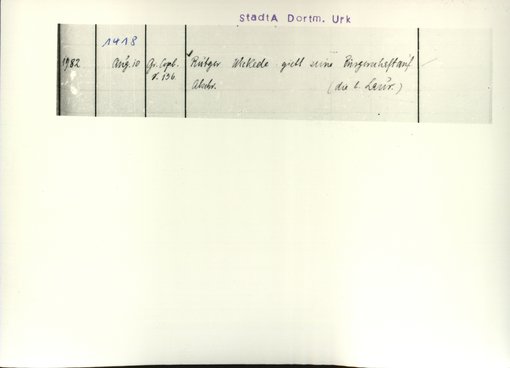 StadtA Dortm. Urk
1418
1982 Aug. 10 Gr. Copb. Rutger Mekede gibt seine Bürgerschaft auf
S. 136 Abschr. (die b. Laur.)